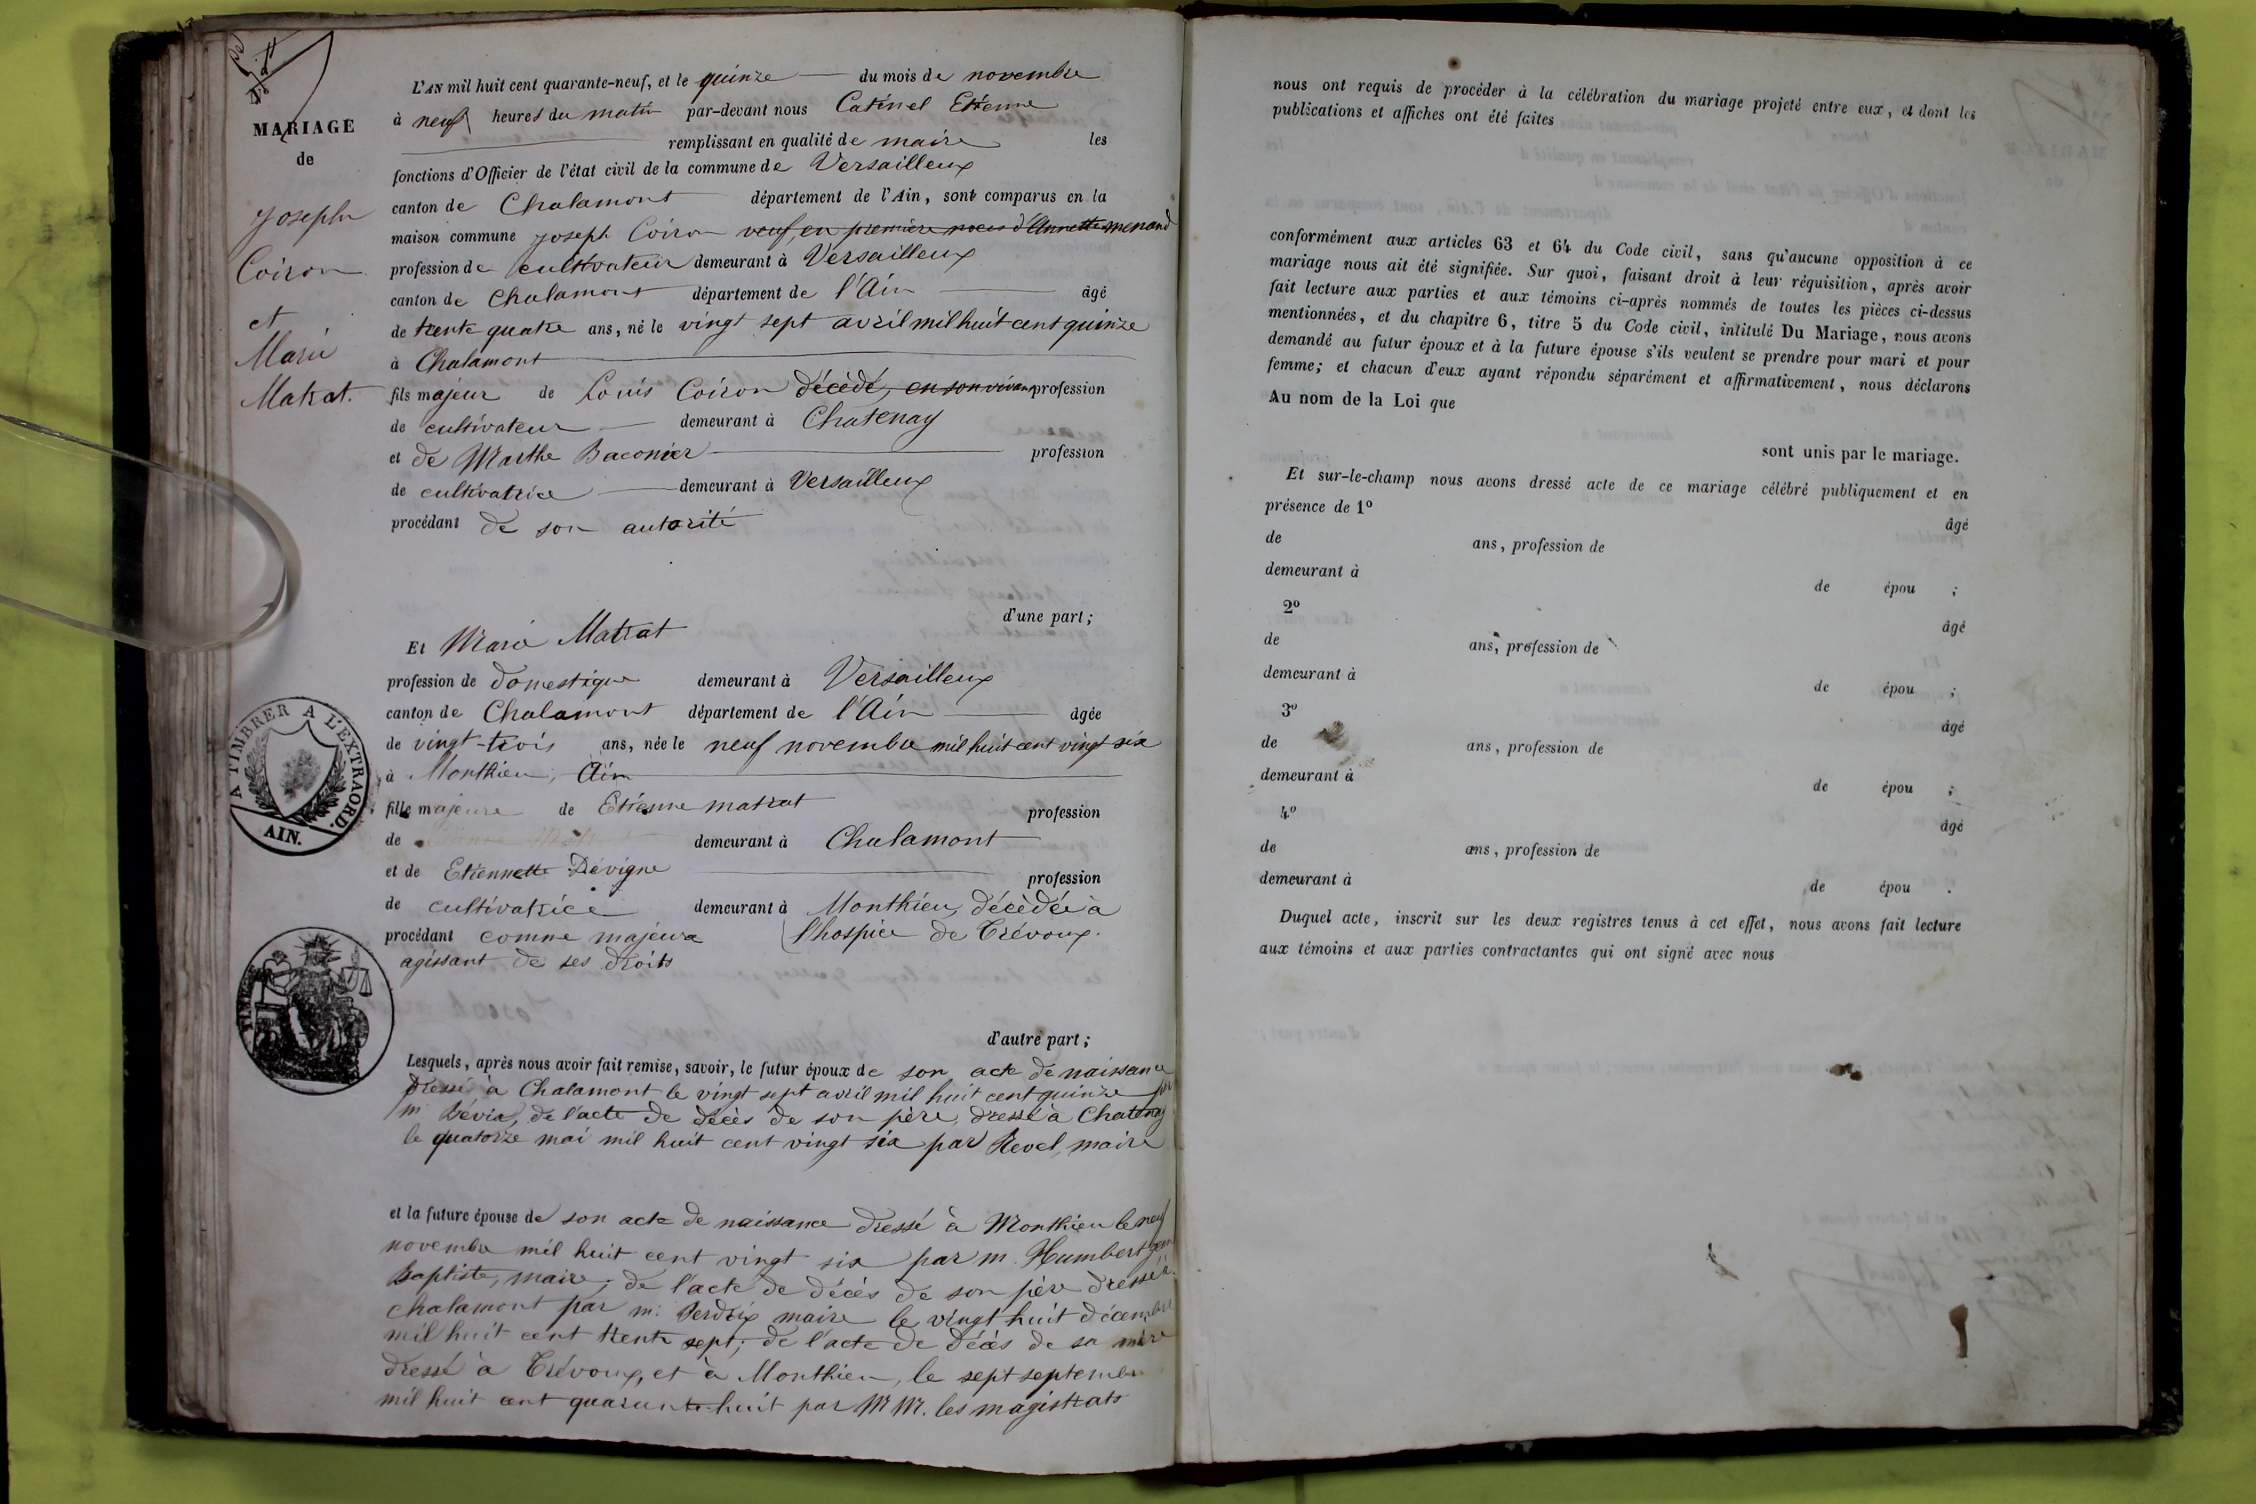 MARIAGE
de
Joseph
Coiron
et
Marie
Matrat.
L'AN mil huit cent quarante-neuf, et le quinze du mois de novembre
à neuf heures du matin par-devant nous Catinel Etienne
remplissant en qualité de maire les
fonctions d'Officier de l'état civil de la commune de Versailleux
canton de Chalamont département de l'Ain, sont comparus en la
maison commune Joseph Coiron veuf, en première noces d'Annette menand
profession de cultivateur demeurant à Versailleux
canton de Chalamont département de l'Ain âgé
de trente quatre ans, né le vingt sept avril mil huit cent quinze
à Chalamont
fils majeur de Louis Coiron décèdé, en son vivant profession
de cultivateur demeurant à Chatenay
et de Marthe Baconier profession
de cultivatrice demeurant à Versailleux
procédant de son autorité
d'une part;
Et Marie Matrat
profession de domestique demeurant à Versailleux
canton de Chalamont département de l'Ain âgée
de vingt-trois ans, née le neuf novembre mil huit cent vingt six
à Monthieu, Ain
fille majeure de Etienne matrat profession
de demeurant à Chalamont
et de Etiennette Dévigne profession
de cultivatrice demeurant à Monthieu, décèdée à
procédant comme majeure l'hospice de Trévoux.
agissant de ses droits
d'autre part;
Lesquels, après nous avoir fait remise, savoir, le futur époux de son acte de naissance
dressé à Chalamont le vingt sept avril mil huit cent quinze par
m. de l'acte de décès de son père, dressé à Chatenay
le quatorze mai mil huit cent vingt six par Revel, maire
et la future épouse de son acte de naissance dressé à Monthieu le neuf
novembre mil huit cent vingt six par m. Humbert Jean
Baptiste, maire; de l'acte de décès de son père dressé à
chalamont par m. Perdrix maire le vingt huit décembre
mil huit cent trente sept; de l'acte de décès de sa mère
dressé à Trévoux, et à Monthieu, le sept septembre
mil huit cent quarante-huit par MM. les magistrats
A TIMBRER A L'EXTRAORD.
AIN.
TIMBRE
nous ont requis de procéder à la célébration du mariage projeté entre eux, et dont les
publications et affiches ont été faites
conformément aux articles 63 et 64 du Code civil, sans qu'aucune opposition à ce
mariage nous ait été signifiée. Sur quoi, faisant droit à leur réquisition, après avoir
fait lecture aux parties et aux témoins ci-après nommés de toutes les pièces ci-dessus
mentionnées, et du chapitre 6, titre 5 du Code civil, intitulé Du Mariage, nous avons
demandé au futur époux et à la future épouse s'ils veulent se prendre pour mari et pour
femme; et chacun d'eux ayant répondu séparément et affirmativement, nous déclarons
Au nom de la Loi que
sont unis par le mariage.
Et sur-le-champ nous avons dressé acte de ce mariage célébré publiquement et en
présence de 1º
âgé
de ans, profession de
demeurant à
de épou ;
2º
âgé
de ans, profession de
demeurant à
de épou ;
3º
âgé
de ans, profession de
demeurant à
de épou ;
4º
âgé
de ans, profession de
demeurant à
de épou .
Duquel acte, inscrit sur les deux registres tenus à cet effet, nous avons fait lecture
aux témoins et aux parties contractantes qui ont signé avec nous